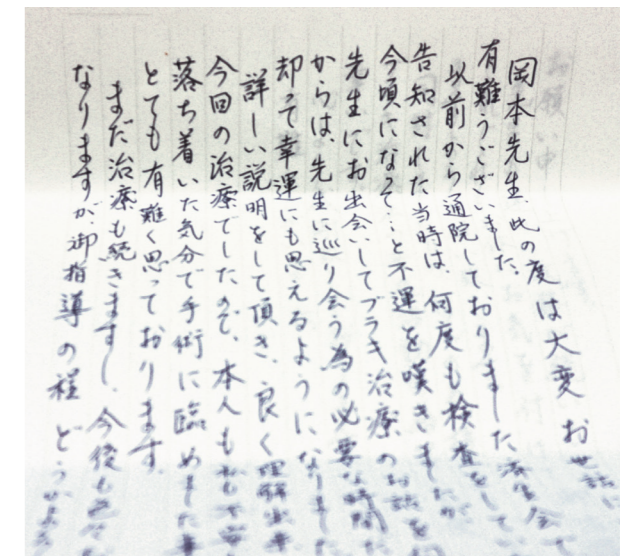 岡本先生、此の度は大変お世話に
有難うございました。
以前から通院しておりました済生会で
告知された当時は、何度も検査をしてい
今頃になって…と不運を嘆きましたが、
先生にお出会いしてブラキ治療のお話を
からは、先生に巡り会う為の必要な時間だ
却って幸運にも思えるようになりました
詳しい説明をして頂き、良く理解出来
今回の治療でしたので、本人も私も
落ち着いた気分で手術に臨めました事
とても有難く思っております。
まだ治療も続きますし、今後も
なりますが、御指導の程どうかよろ